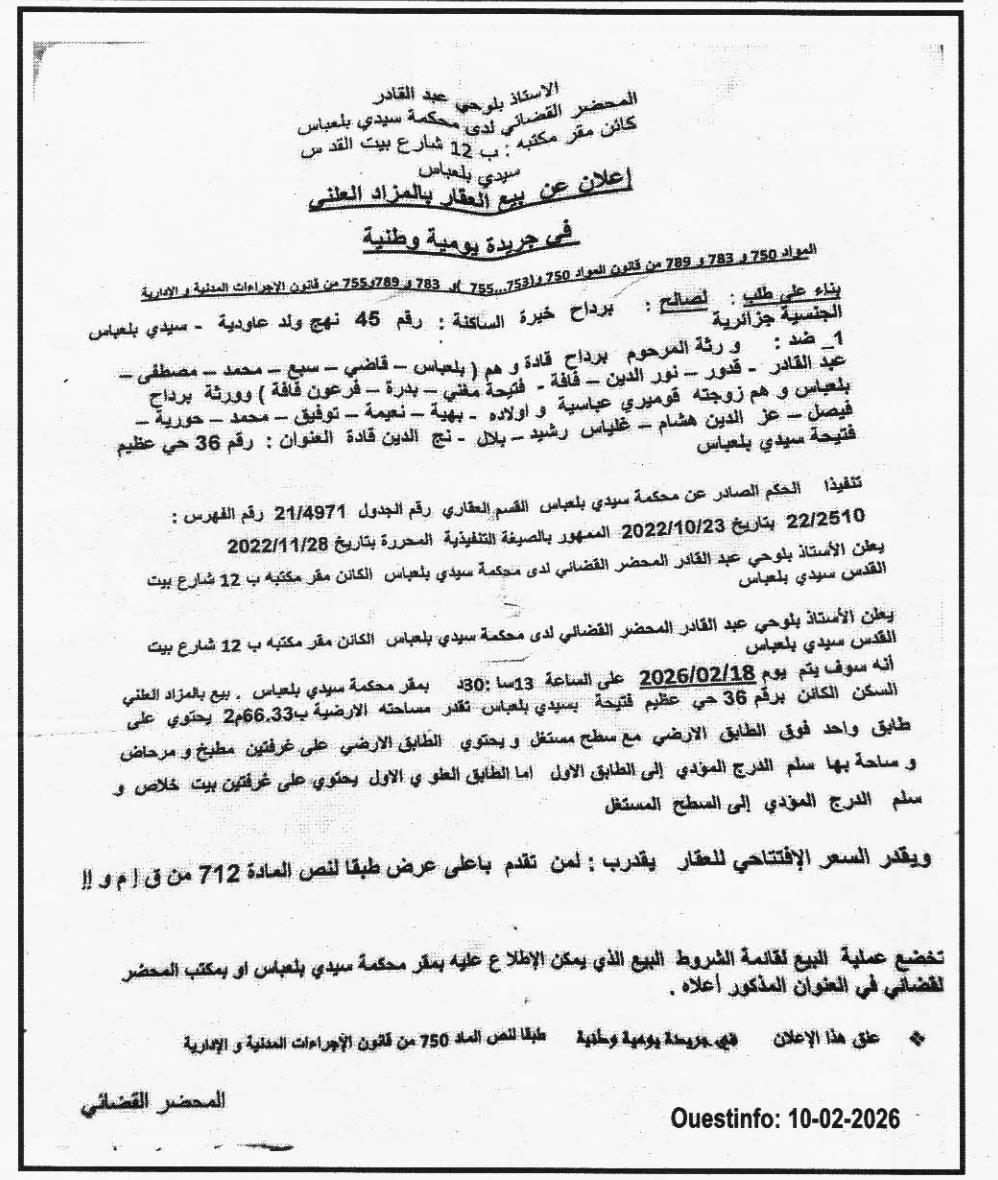 الاستاذ بلوحي عبد القادر
المحضر القضائي لدى محكمة سيدي بلعباس
كائن مقر مكتبه : ب 12 شارع بيت القد س
سيدي بلعباس
إعلان عن بيع العقار بالمزاد العلني
في جريدة يومية وطنية
المواد 750 و 783 و 789 من قانون المواد 750 و(753...755 )و 783 و 789و755 من قانون الإجراءات المدنية و الإدارية
بناء على طلب : لصالح : برداح خيرة الساكنة : رقم 45 نهج ولد عاودية - سيدي بلعباس
الجنسية جزائرية
1_ ضد : و رثة المرحوم برداح قادة و هم ( بلعباس – قاضي – سبع – محمد – مصطفى –
عبد القادر - قدور – نور الدين – قافة - فتيحة مغني – بدرة – فرعون قافة ) وورثة برداح
بلعباس و هم زوجته قوميري عباسية و اولاده - بهية – نعيمة – توفيق – محمد – حورية –
فيصل – عز الدين هشام – غلياس رشيد – بلال - نج الدين قادة العنوان : رقم 36 حي عظيم
فتيحة سيدي بلعباس
تنفيذا الحكم الصادر عن محكمة سيدي بلعباس القسم العقاري رقم الجدول 21/4971 رقم الفهرس :
22/2510 بتاريخ 2022/10/23 الممهور بالصيغة التنفيذية المحررة بتاريخ 2022/11/28
يعلن الأستاذ بلوحي عبد القادر المحضر القضائي لدى محكمة سيدي بلعباس الكائن مقر مكتبه ب 12 شارع بيت
القدس سيدي بلعباس
يعلن الأستاذ بلوحي عبد القادر المحضر القضائي لدى محكمة سيدي بلعباس الكائن مقر مكتبه ب 12 شارع بيت
القدس سيدي بلعباس
أنه سوف يتم يوم 2026/02/18 على الساعة 13سا :30د بمقر محكمة سيدي بلعباس . بيع بالمزاد العلني
السكن الكائن برقم 36 حي عظيم فتيحة بسيدي بلعباس تقدر مساحته الارضية ب66.33م2 يحتوي على
طابق واحد فوق الطابق الارضي مع سطح مستغل و يحتوي الطابق الارضي على غرفتين مطبخ و مرحاض
و ساحة بها سلم الدرج المؤدي إلى الطابق الاول اما الطابق العلو ي الاول يحتوي على غرفتين بيت خلاص و
سلم الدرج المؤدي إلى السطح المستغل
ويقدر السعر الإفتتاحي للعقار يقدرب : لمن تقدم باعلى عرض طبقا لنص المادة 712 من ق إ م و إإ
تخضع عملية البيع لقائمة الشروط البيع الذي يمكن الإطلا ع عليه بمقر محكمة سيدي بلعباس او بمكتب المحضر
لقضائي في العنوان المذكور أعلاه .
❖ علق هذا الإعلان في جريدة يومية وطنية طبقا لنص الماد 750 من قانون الإجراءات المدنية و الإدارية
المحضر القضائي
Ouestinfo: 10-02-2026